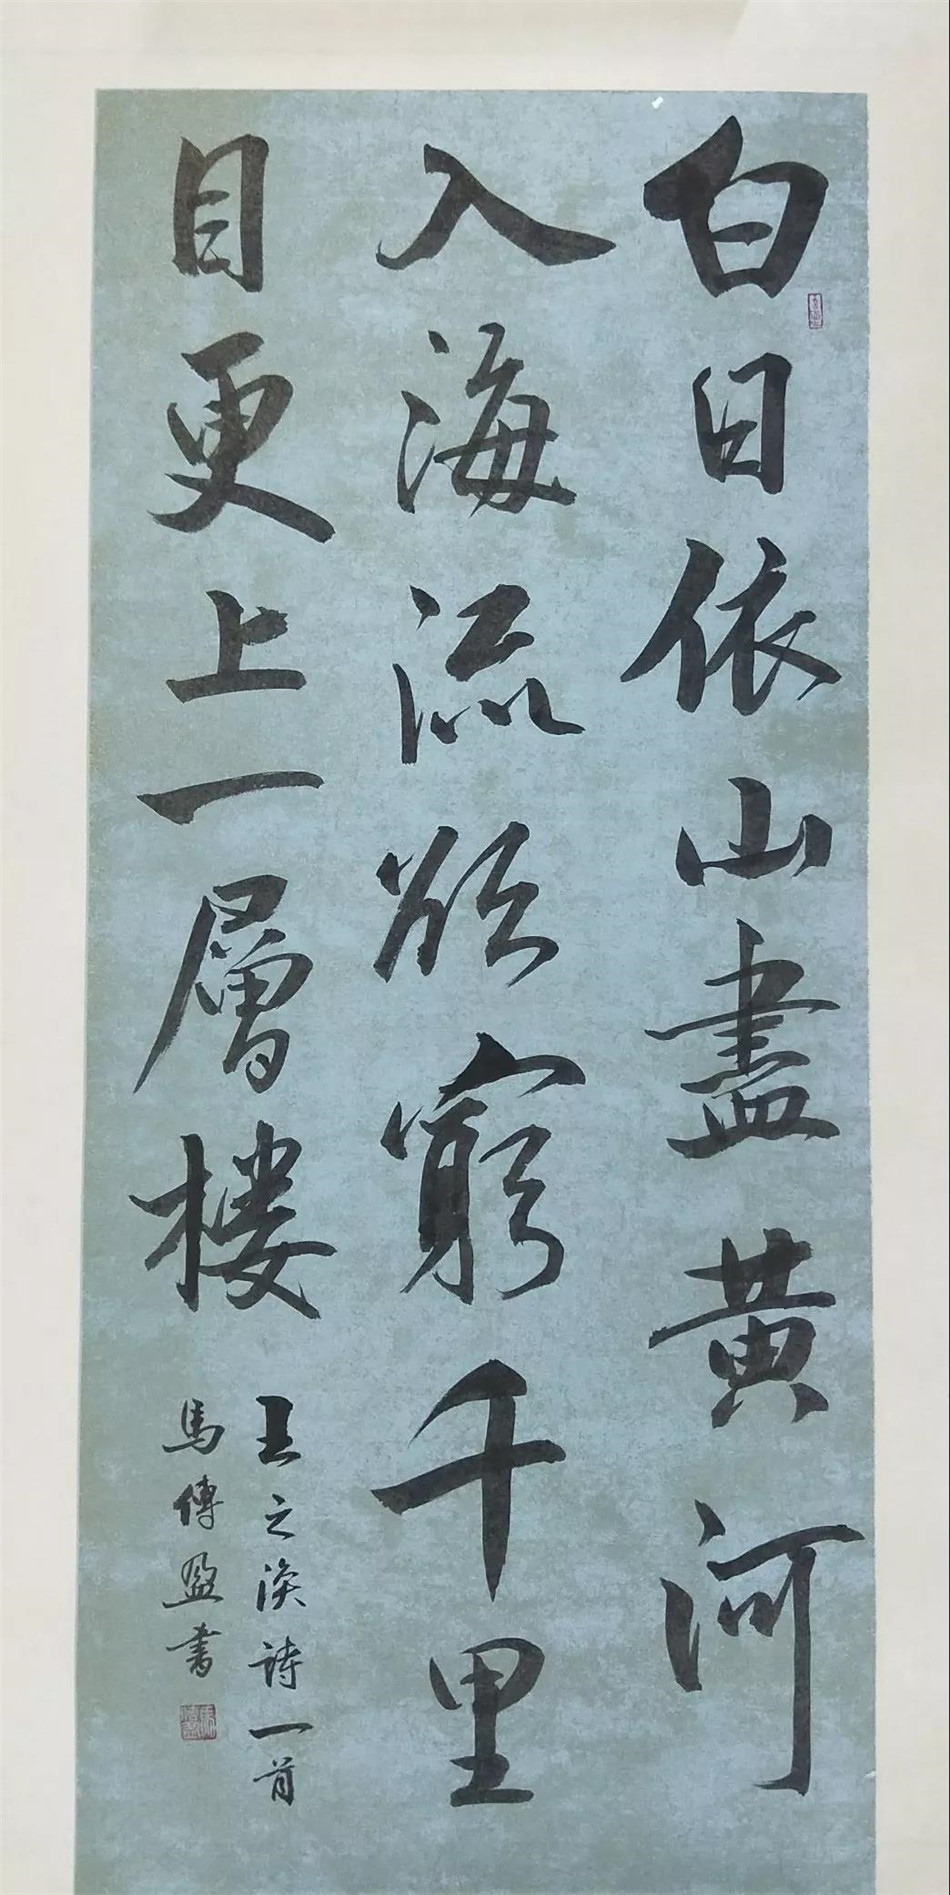 白日依山盡黄河
入海流欲窮千里
目更上一層樓
王之渙詩一首
馬傳盈書